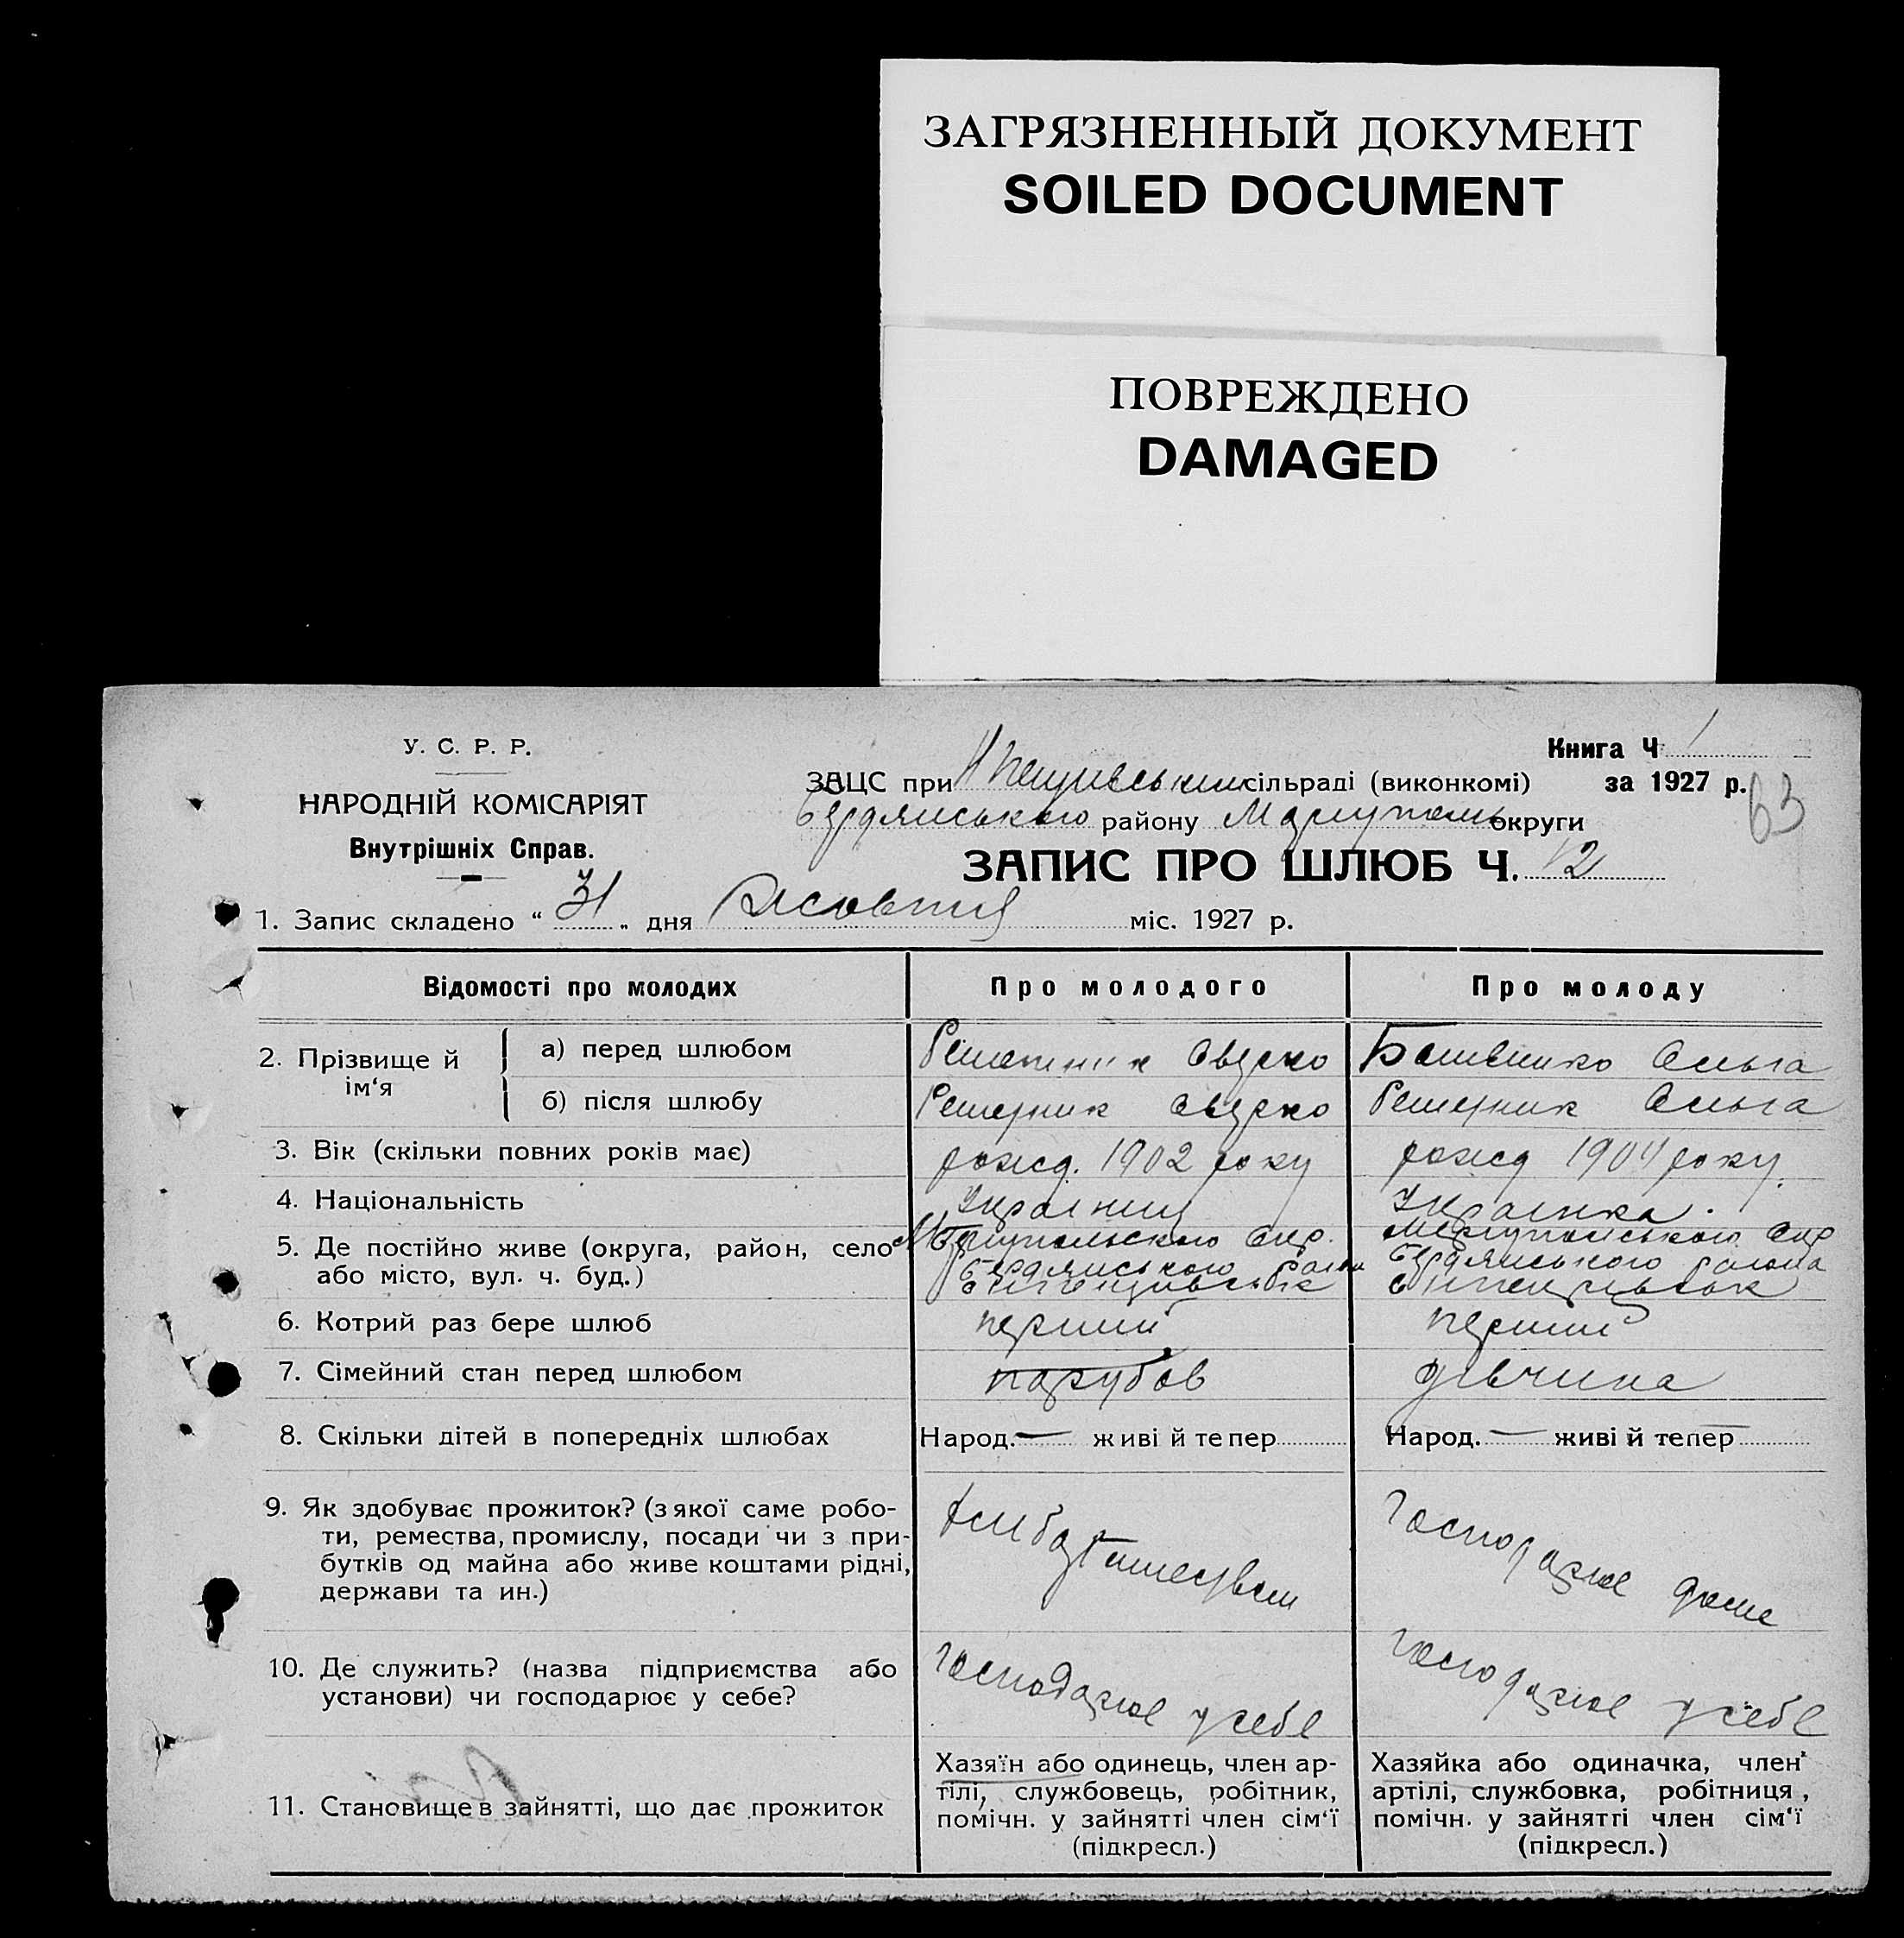 ЗАГРЯЗНЕННЫЙ ДОКУМЕНТ
SOILED DOCUMENT
ПОВРЕЖДЕНО
DAMAGED
У. С. Р. Р.
НАРОДНІЙ КОМІСАРІЯТ
Внутрішніх Справ.
Книга Ч 1
ЗАЦС при сільраді (виконкомі) за 1927 р.
63
Бердянського району Маріуполь округи
ЗАПИС ПРО ШЛЮБ Ч. 12
1. Запис складено “ 31 „ дня Жовтня міс. 1927 р.
Відомості про молодих
Про молодого
Про молоду
2. Прізвище й ім‘я
а) перед шлюбом
Оверко
Ольга
б) після шлюбу
Оверко
Ольга
3. Вік (скільки повних років має)
рожд. 1902 року
рожд 1904 року.
4. Національність
Українец
Українка.
5. Де постійно живе (округа, район, село або місто, вул. ч. буд.)
Маріупольского Окр.
Бердянського
Маріупольського Окр
Бердянського района
6. Котрий раз бере шлюб
перший
перший
7. Сімейний стан перед шлюбом
парубок
дівчина
8. Скільки дітей в попередніх шлюбах
Народ. — живі й тепер
Народ. — живі й тепер —
9. Як здобуває прожиток? (з якої саме робо-
ти, ремества, промислу, посади чи з при-
бутків од майна або живе коштами рідні,
держави та ин.)
Хліборобством
Господарює дома
10. Де служить? (назва підприємства або
установи) чи господарює у себе?
Господарює у себе
Господарює у себе
11. Становище в зайнятті, що дає прожиток
Хазяїн або одинець, член ар-
тілі, службовець, робітник,
помічн. у зайнятті член сім‘ї
(підкресл.)
Хазяйка або одиначка, член
артілі, службовка, робітниця,
помічн. у зайнятті член сім‘ї
(підкресл.)